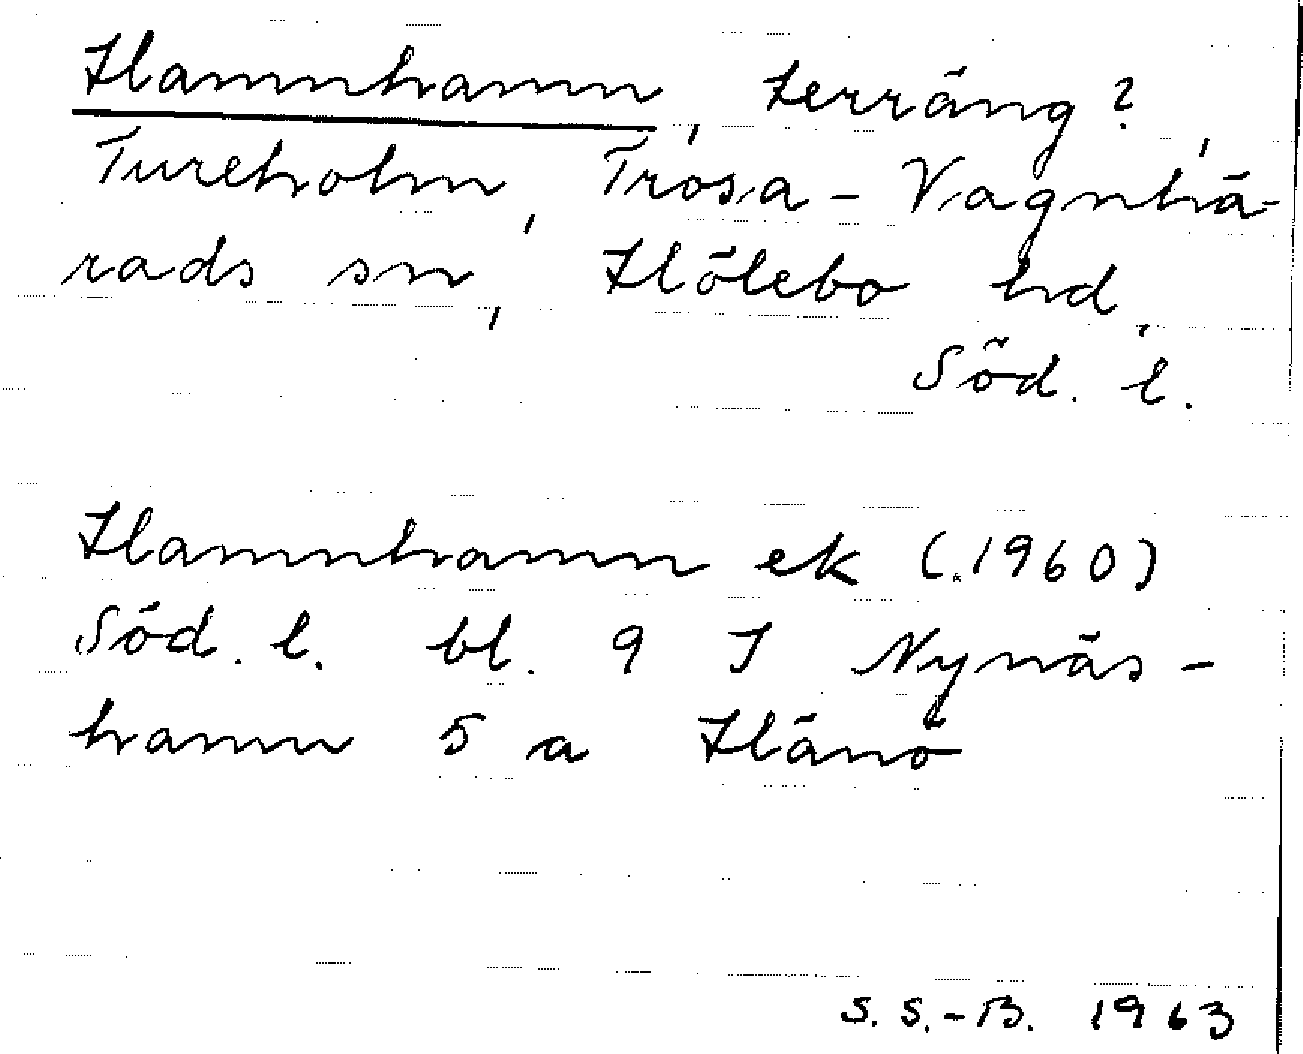 Hamnhamn, terräng?,
Tureholm, Trosa-Vagnhä-
rads sn, Hölebo hd,
Söd. l.
Hamnhamn ek (1960)
Söd. l. bl. 9 I Nynäs-
hamn 5 a Hånö
S. S.-B. 1963